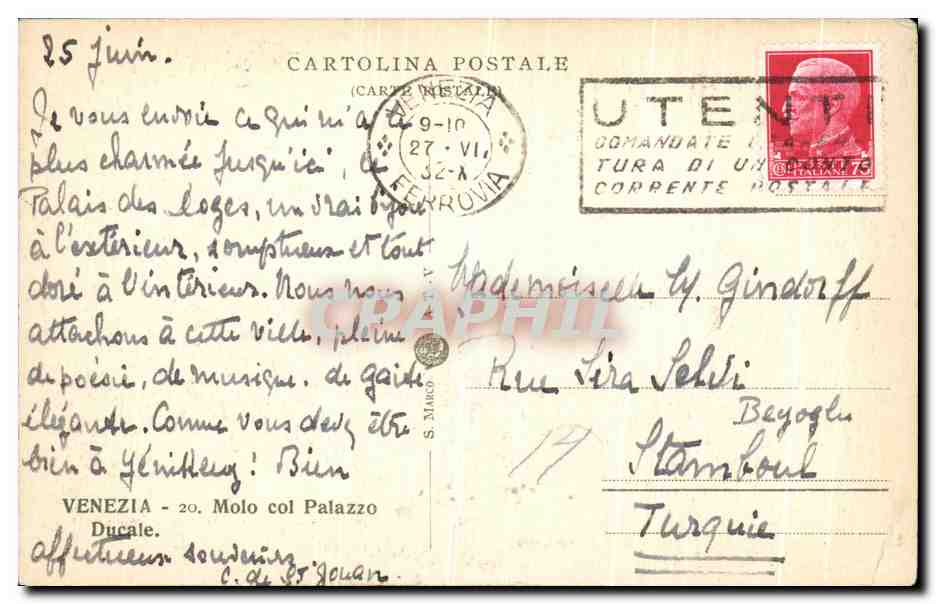 25 Juin.
CARTOLINA POSTALE
(CARTE POSTALE)
VENEZIA
9-10
27 · VI
32-X
FERROVIA
UTENTI
COMANDATE
TURA DI UN CONTO
CORRENTE POSTALE
ITALIANE 75
Je vous envoie ce qui m'a le
plus charmée jusqu'ici, le
Palais des Doges, un vrai bijou
à l'extérieur, somptueux et tout
doré à l'intérieur. Nous nous
attachons à cette ville, pleine
de poésie, de musique, de gaité
élégante. Comme vous devez être
bien à Yénikeuy! Bien
VENEZIA - 20. Molo col Palazzo
Ducale.
affectueux souvenirs
C. de St Jouan.
S. MARCO
CPAPHIL
Mademoiselle Gindorff
Rue Sira Selvi
Beyoglu
Stamboul
Turquie
14